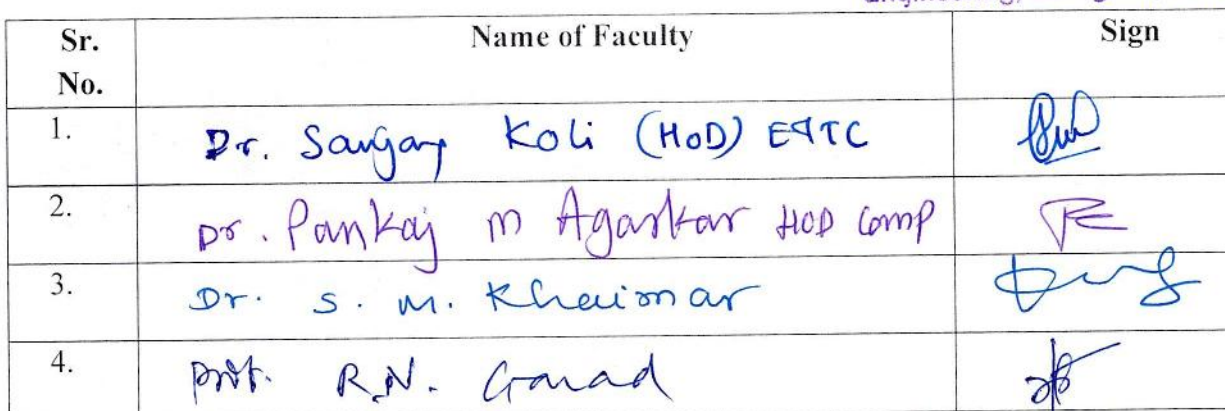 Sr. No. Name of Faculty Sign
1. Dr. Sanjay Koli (HoD) E&TC
2. Dr. Pankaj M Agarkar HOD Comp
3. Dr. S. M. Khairnar
4. Prof. R.N. Garad